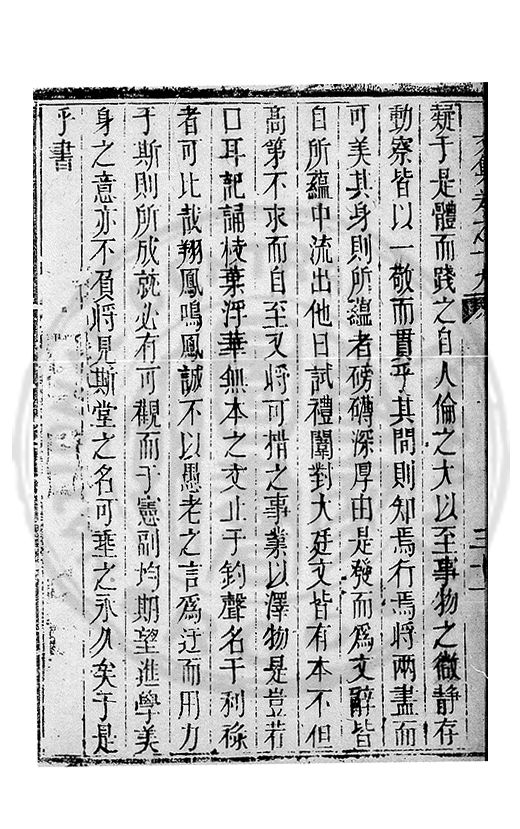 疑于是體而踐之自人倫之大以至事物之微靜存
動察皆以一敬而貫乎其間則知焉行焉將兩盡而
可美其身則所蘊者磅礴深厚由是發而為文辭皆
自所蘊中流出他日試禮闈對大廷文皆有本不但
高第不求而自至又將可措之事業以澤物是豈若
口耳記誦枝葉浮華無本之文止于釣聲名干利祿
者可比哉翔鳳鳴鳳誠不以愚老之言為迂而用力
于斯則所成就必有可觀而于憲副均期望進學美
身之意亦不負將見斯堂之名可垂之永久矣于是
乎書